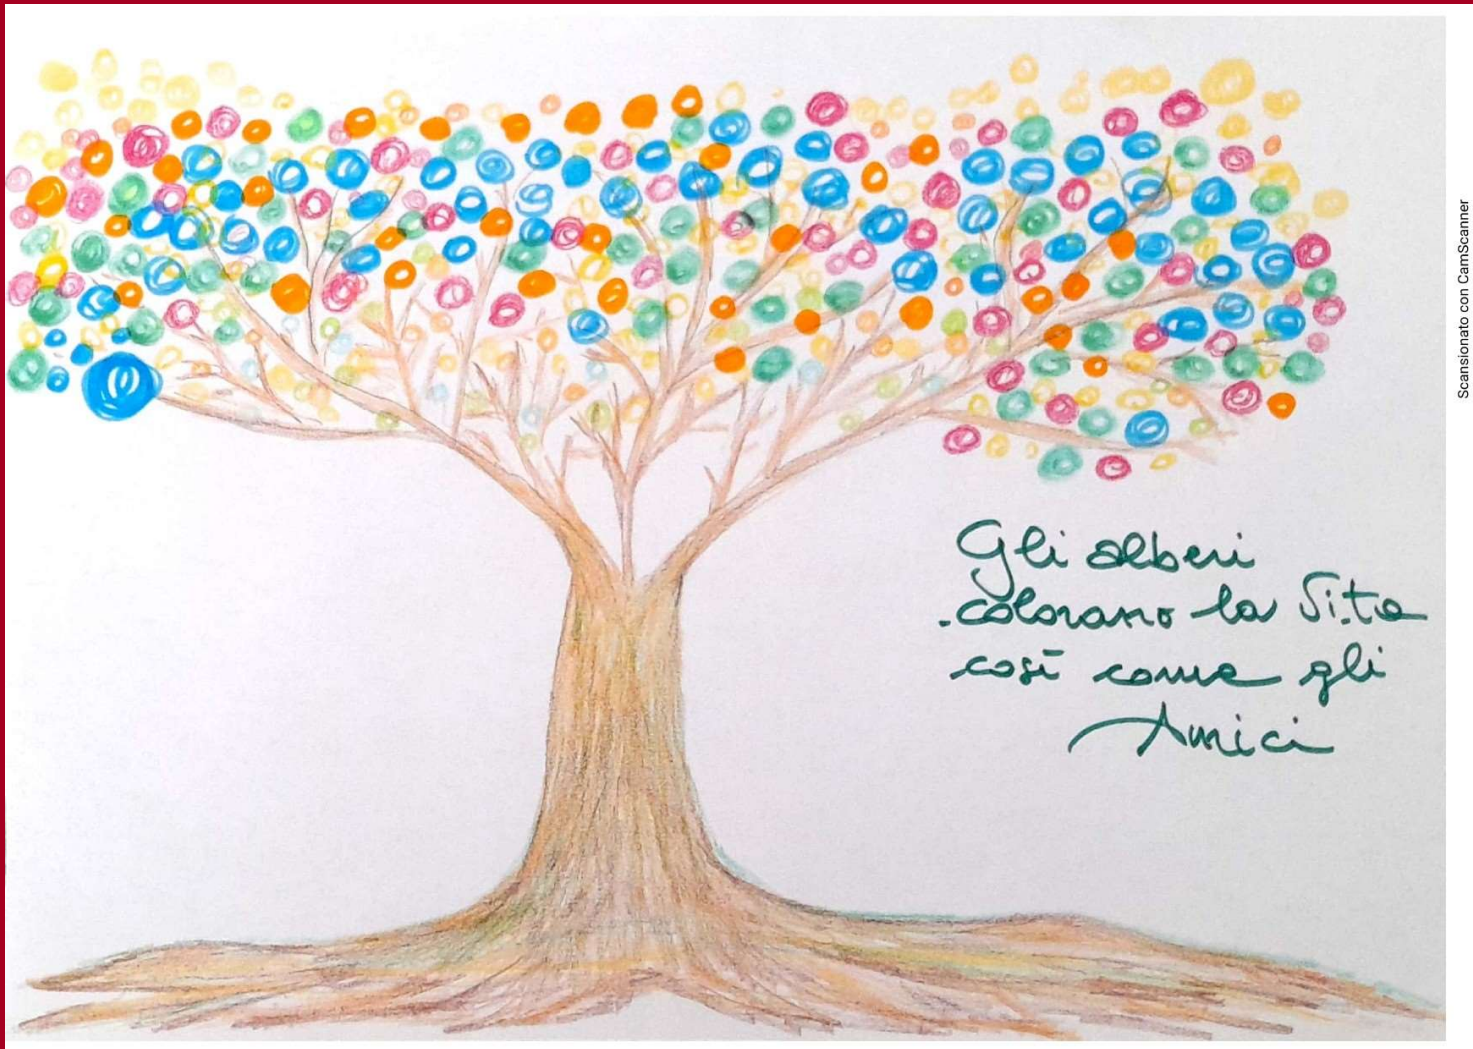 Gli alberi
colorano la Vita
così come gli
Amici
Scansionato con CamScanner